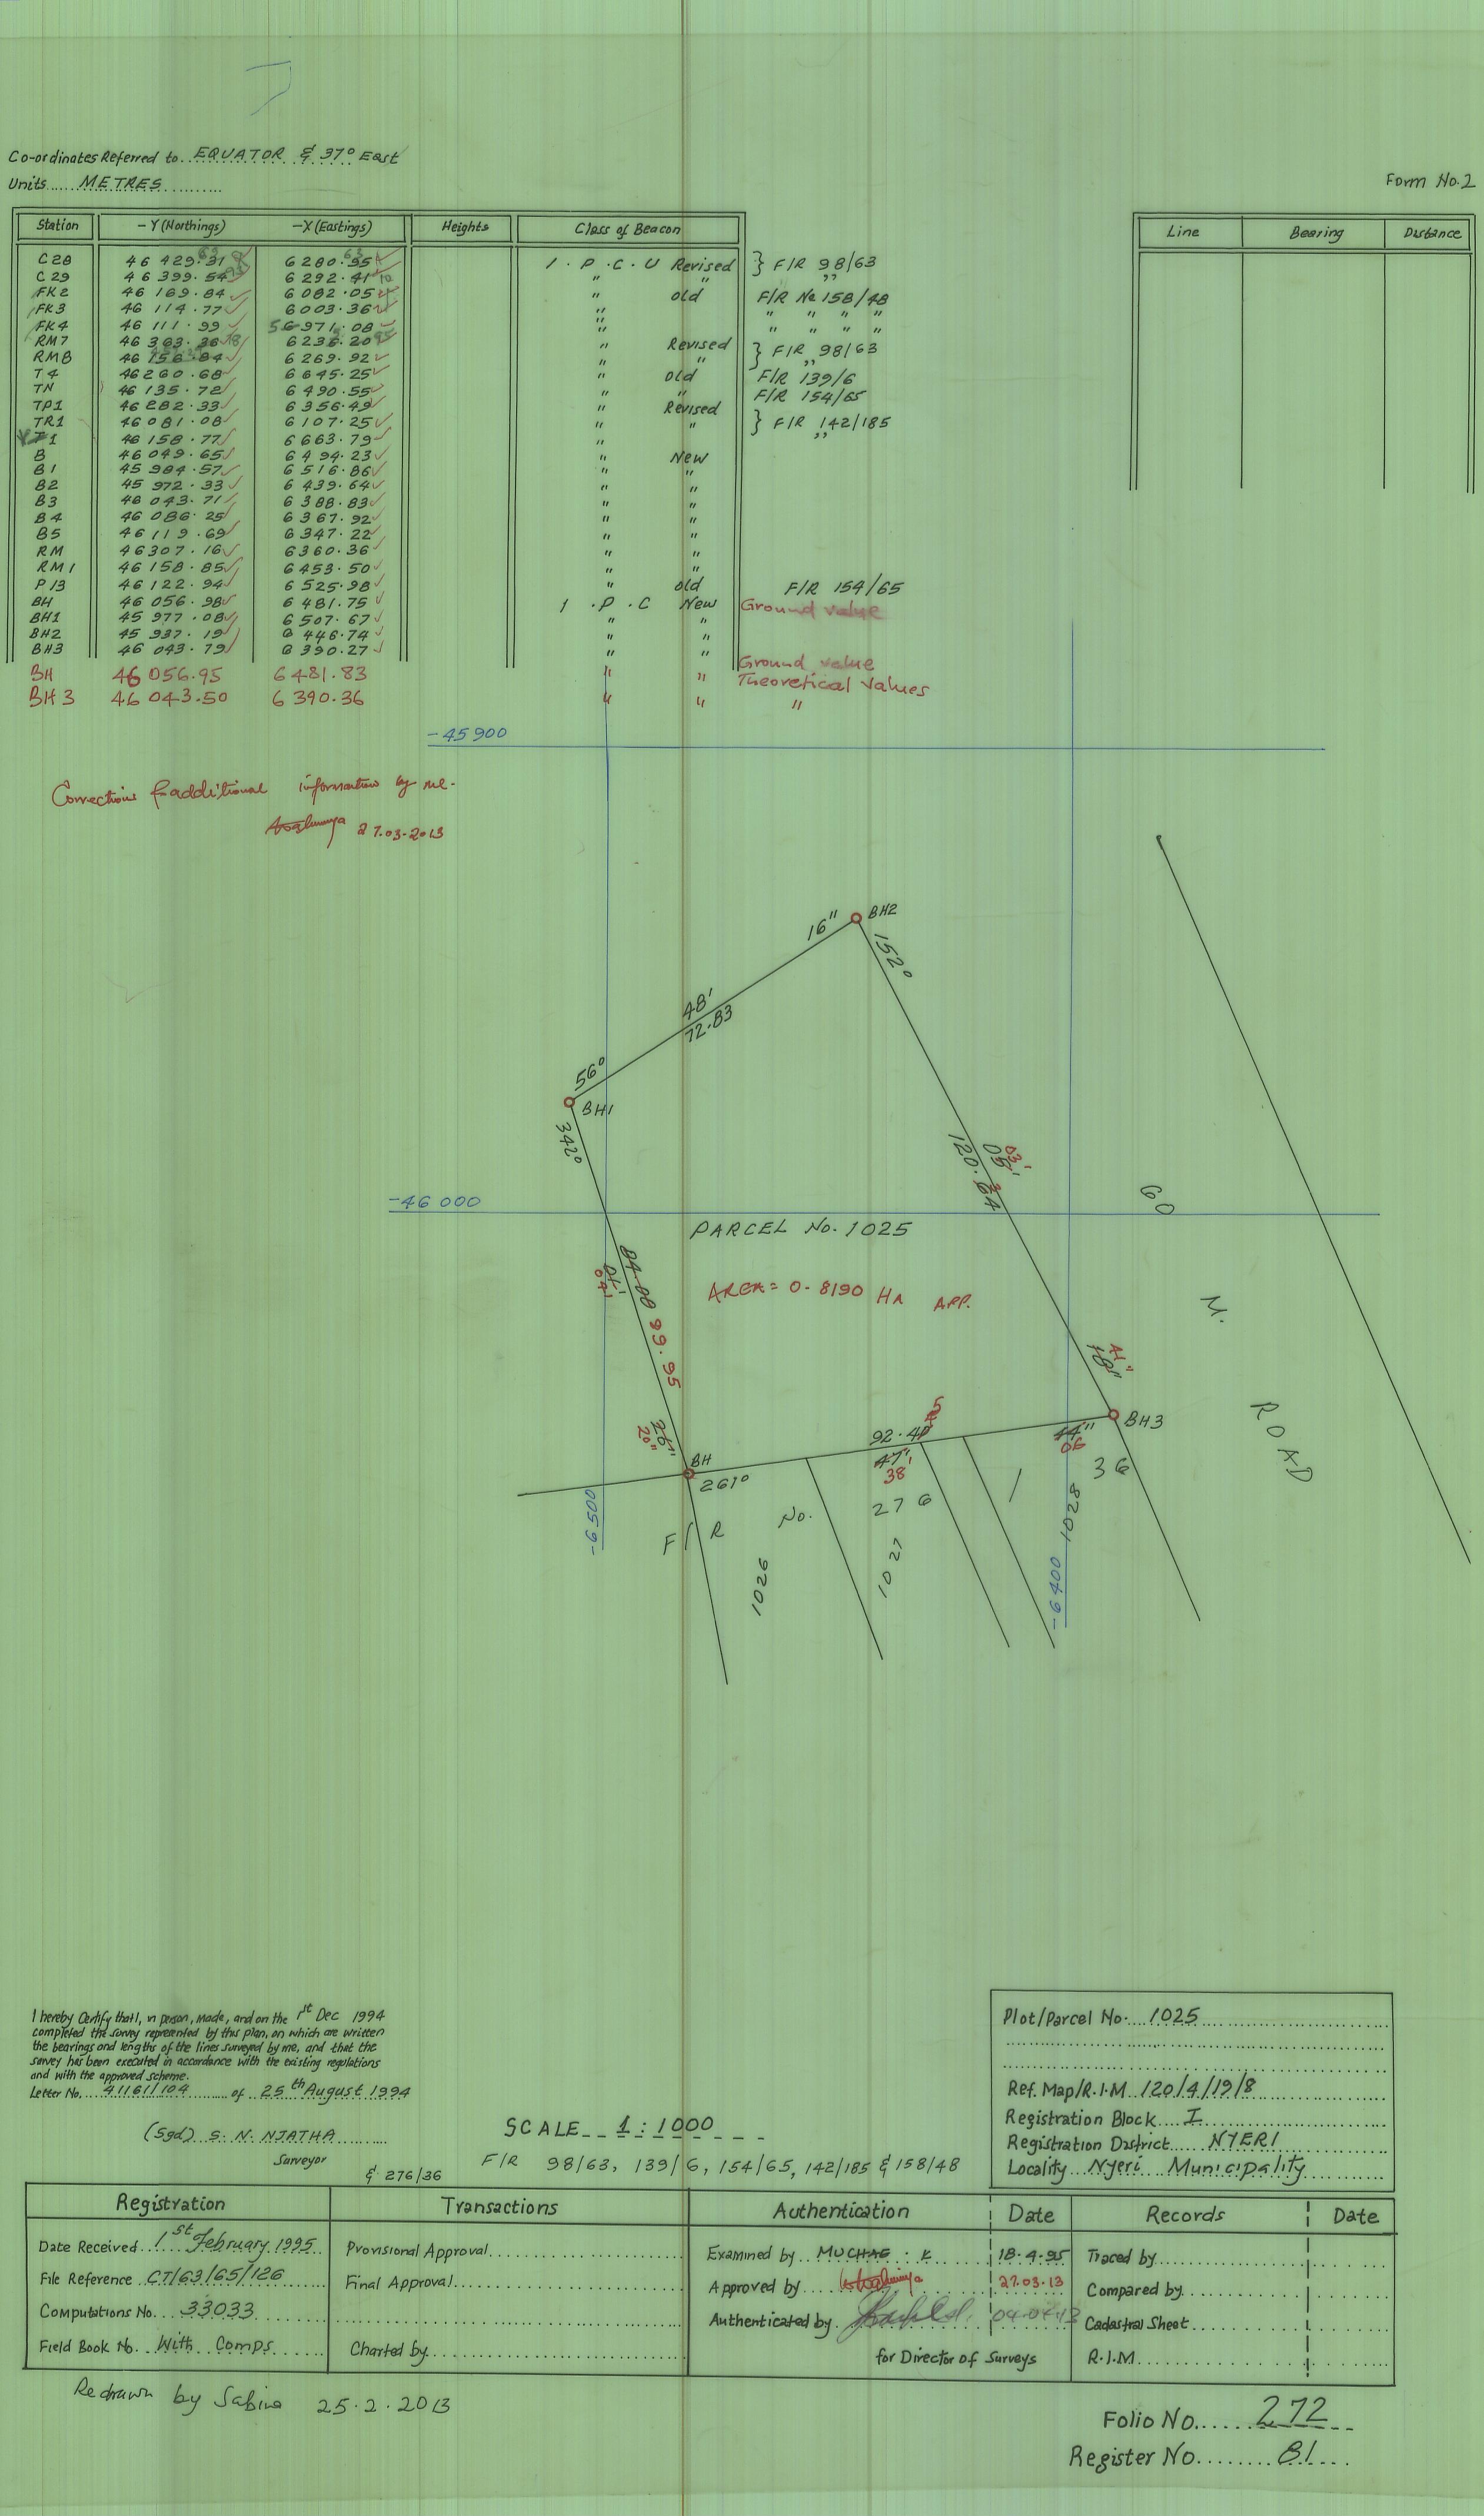 Co-ordinates Referred to EQUATOR & 37° East
Units METRES
Form No. 2
Station -Y (Northings) -X (Eastings) Heights Class of Beacon
Line Bearing Distance
C28 46 429.31 6280.95 I.P.C.U Revised } F/R 98/63
C29 46 399.54 6292.41 " " "
FK2 46 169.84 6082.05 " old F/R No 158/48
FK3 46 114.77 6003.36 " " " " "
FK4 46 111.99 5971.08 " " " " "
RM7 46 363.36 6236.20 " Revised } F/R 98/63
RM8 46 156.84 6269.92 " " "
T4 46260.68 6645.25 " old F/R 139/6
TN 46 135.72 6490.55 " " F/R 154/65
TP1 46 282.33 6356.49 " Revised } F/R 142/185
TR1 46 081.08 6107.25 " " "
46 158.77 6663.79 "
B 46049.65 6494.23 " New
B1 45 984.57 6516.86 " "
B2 45 972.33 6439.64 " "
B3 46 043.71 6388.83 " "
B4 46 086.25 6367.92 " "
B5 46119.69 6347.22 " "
RM 46307.16 6360.36 " "
RM1 46158.85 6453.50 " "
P13 46 122.94 6525.98 " old F/R 154/65
BH 46 056.98 6481.75 I.P.C New Ground value
BH1 45 977.08 6507.67 " "
BH2 45 937.19 6446.74 " "
BH3 46 043.79 6390.27 " " Ground value
BH 46 056.95 6481.83 " " Theoretical values
BH3 46 043.50 6390.36 " " "
-45900
Corrections & additional information by me.
27.03.2013
16" BH2
152°
48'
72.83
56°
BH1
342°
03'
05'
120.64
60
-46 000
PARCEL No. 1025
04'
84.00 99.95
AREA = 0.8190 HA APP.
M.
41"
18"
ROAD
5
92.4
BH3
26"
20"
BH
261°
47'
38
44"
06
36
-6500
F/R No. 276 /
1026
1027
1028
-6400
I hereby Certify that I, in person, made, and on the 1st Dec 1994
completed the survey represented by this plan, on which are written
the bearings and lengths of the lines surveyed by me, and that the
survey has been executed in accordance with the existing regulations
and with the approved scheme.
Letter No. 41161/104 of 25th August 1994
(Sgd) S. N. NJATHA
Surveyor
SCALE 1:1000
F/R 98/63, 139/6, 154/65, 142/185 & 158/48
& 276/36
Plot/Parcel No. 1025
Ref. Map/R.I.M 120/4/19/8
Registration Block I
Registration District NYERI
Locality Nyeri Municipality
Registration Transactions Authentication Date Records Date
Date Received 1st February 1995 Provisional Approval Examined by MUCHAE K 18.4.95 Traced by
File Reference CT/63/65/126 Final Approval Approved by 27.03.13 Compared by
Computations No. 33033 Authenticated by 04.04.13 Cadastral Sheet
Field Book No. With Comps Charted by for Director of Surveys R.I.M
Redrawn by Sabina 25.2.2013
Folio No. 272
Register No. 81